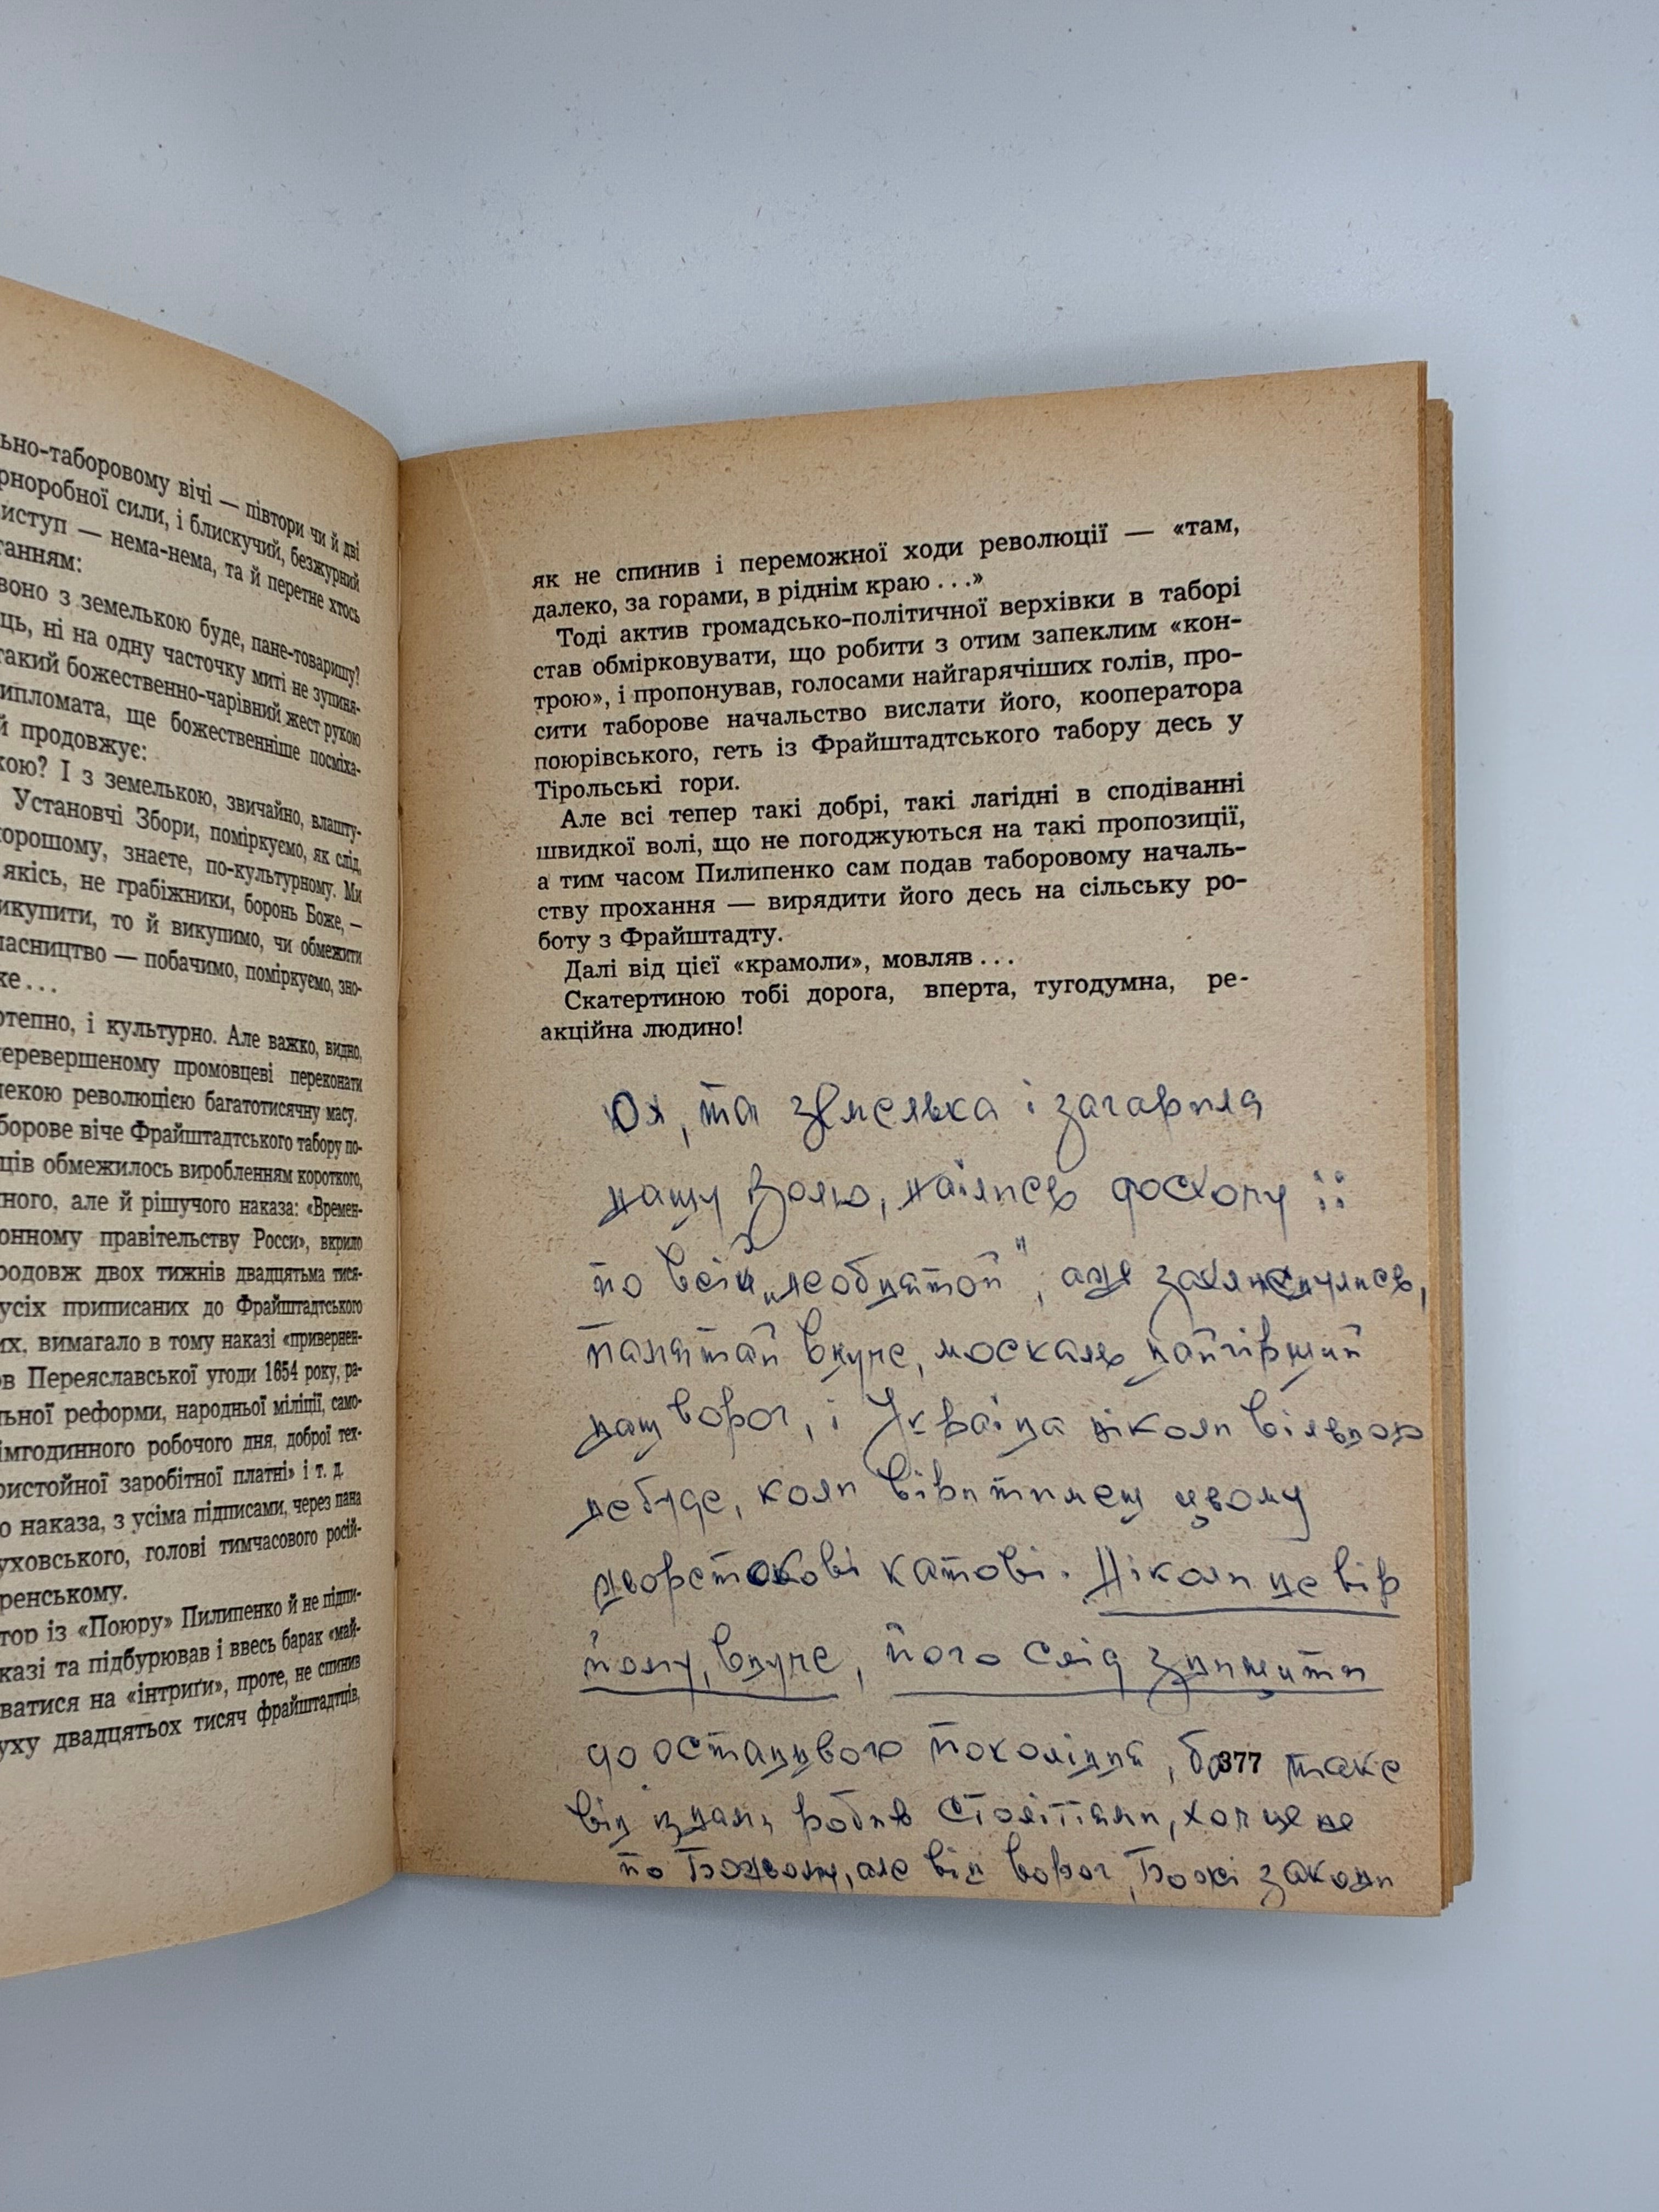 ьно-таборовому вічі — півтори чи й дві
рноробної сили, і блискучий, безжурний
иступ — нема-нема, та й перетне хтось
танням:
воно з земелькою буде, пане-товаришу?
ць, ні на одну часточку миті не зупиня-
такий божественно-чарівний жест рукою
ипломата, ще божественніше посміха-
й продовжує:
кою? І з земелькою, звичайно, влашту-
Установчі Збори, поміркуємо, як слід,
орошому, знаєте, по-культурному. Ми
якісь, не грабіжники, боронь Боже, —
икупити, то й викупимо, чи обмежити
ласництво — побачимо, поміркуємо, зно-
ке...
отепно, і культурно. Але важко, видно,
перевершеному промовцеві переконати
лекою революцією багатотисячну масу.
борове віче Фрайштадтського табору по-
ців обмежилось виробленням короткого,
ного, але й рішучого наказа: «Времен-
онному правітельству Росси», вкрило
родовж двох тижнів двадцятьма тися-
усіх приписаних до Фрайштадтського
их, вимагало в тому наказі «привернен-
ов Переяславської угоди 1654 року, ра-
льної реформи, народньої міліції, само-
імгодинного робочого дня, доброї тех-
ристойної заробітної платні» і т. д.
о наказа, з усіма підписами, через пана
уховського, голові тимчасового росій-
ренському.
тор із «Поюру» Пилипенко й не підпи-
казі та підбурював і ввесь барак «май-
ватися на «інтриґи», проте, не спинив
уху двадцятьох тисяч фрайштадтців,
як не спинив і переможної ходи революції — «там,
далеко, за горами, в ріднім краю...»
Тоді актив громадсько-політичної верхівки в таборі
став обмірковувати, що робити з отим запеклим «кон-
трою», і пропонував, голосами найгарячіших голів, про-
сити таборове начальство вислати його, кооператора
поюрівського, геть із Фрайштадтського табору десь у
Тірольські гори.
Але всі тепер такі добрі, такі лагідні в сподіванні
швидкої волі, що не погоджуються на такі пропозиції,
а тим часом Пилипенко сам подав таборовому началь-
ству прохання — вирядити його десь на сільську ро-
боту з Фрайштадту.
Далі від цієї «крамоли», мовляв...
Скатертиною тобі дорога, вперта, тугодумна, ре-
акційна людино!
Ох, та земелька і загарбила
нашу волю, наїлись досхочу її
по всій „необнятой", аж захлинулись,
Памятай внуче, москаль найгірший
наш ворог, і Україна ніколи вільною
не буде, коли віритимеш цьому
жорстокові катові. Ніколи не вір
йому, внуче, його слід знищити
до останнього покоління, бо таке
він з нами робив століттями, хоч це не
по Божому, але він ворог, Божі закони
377